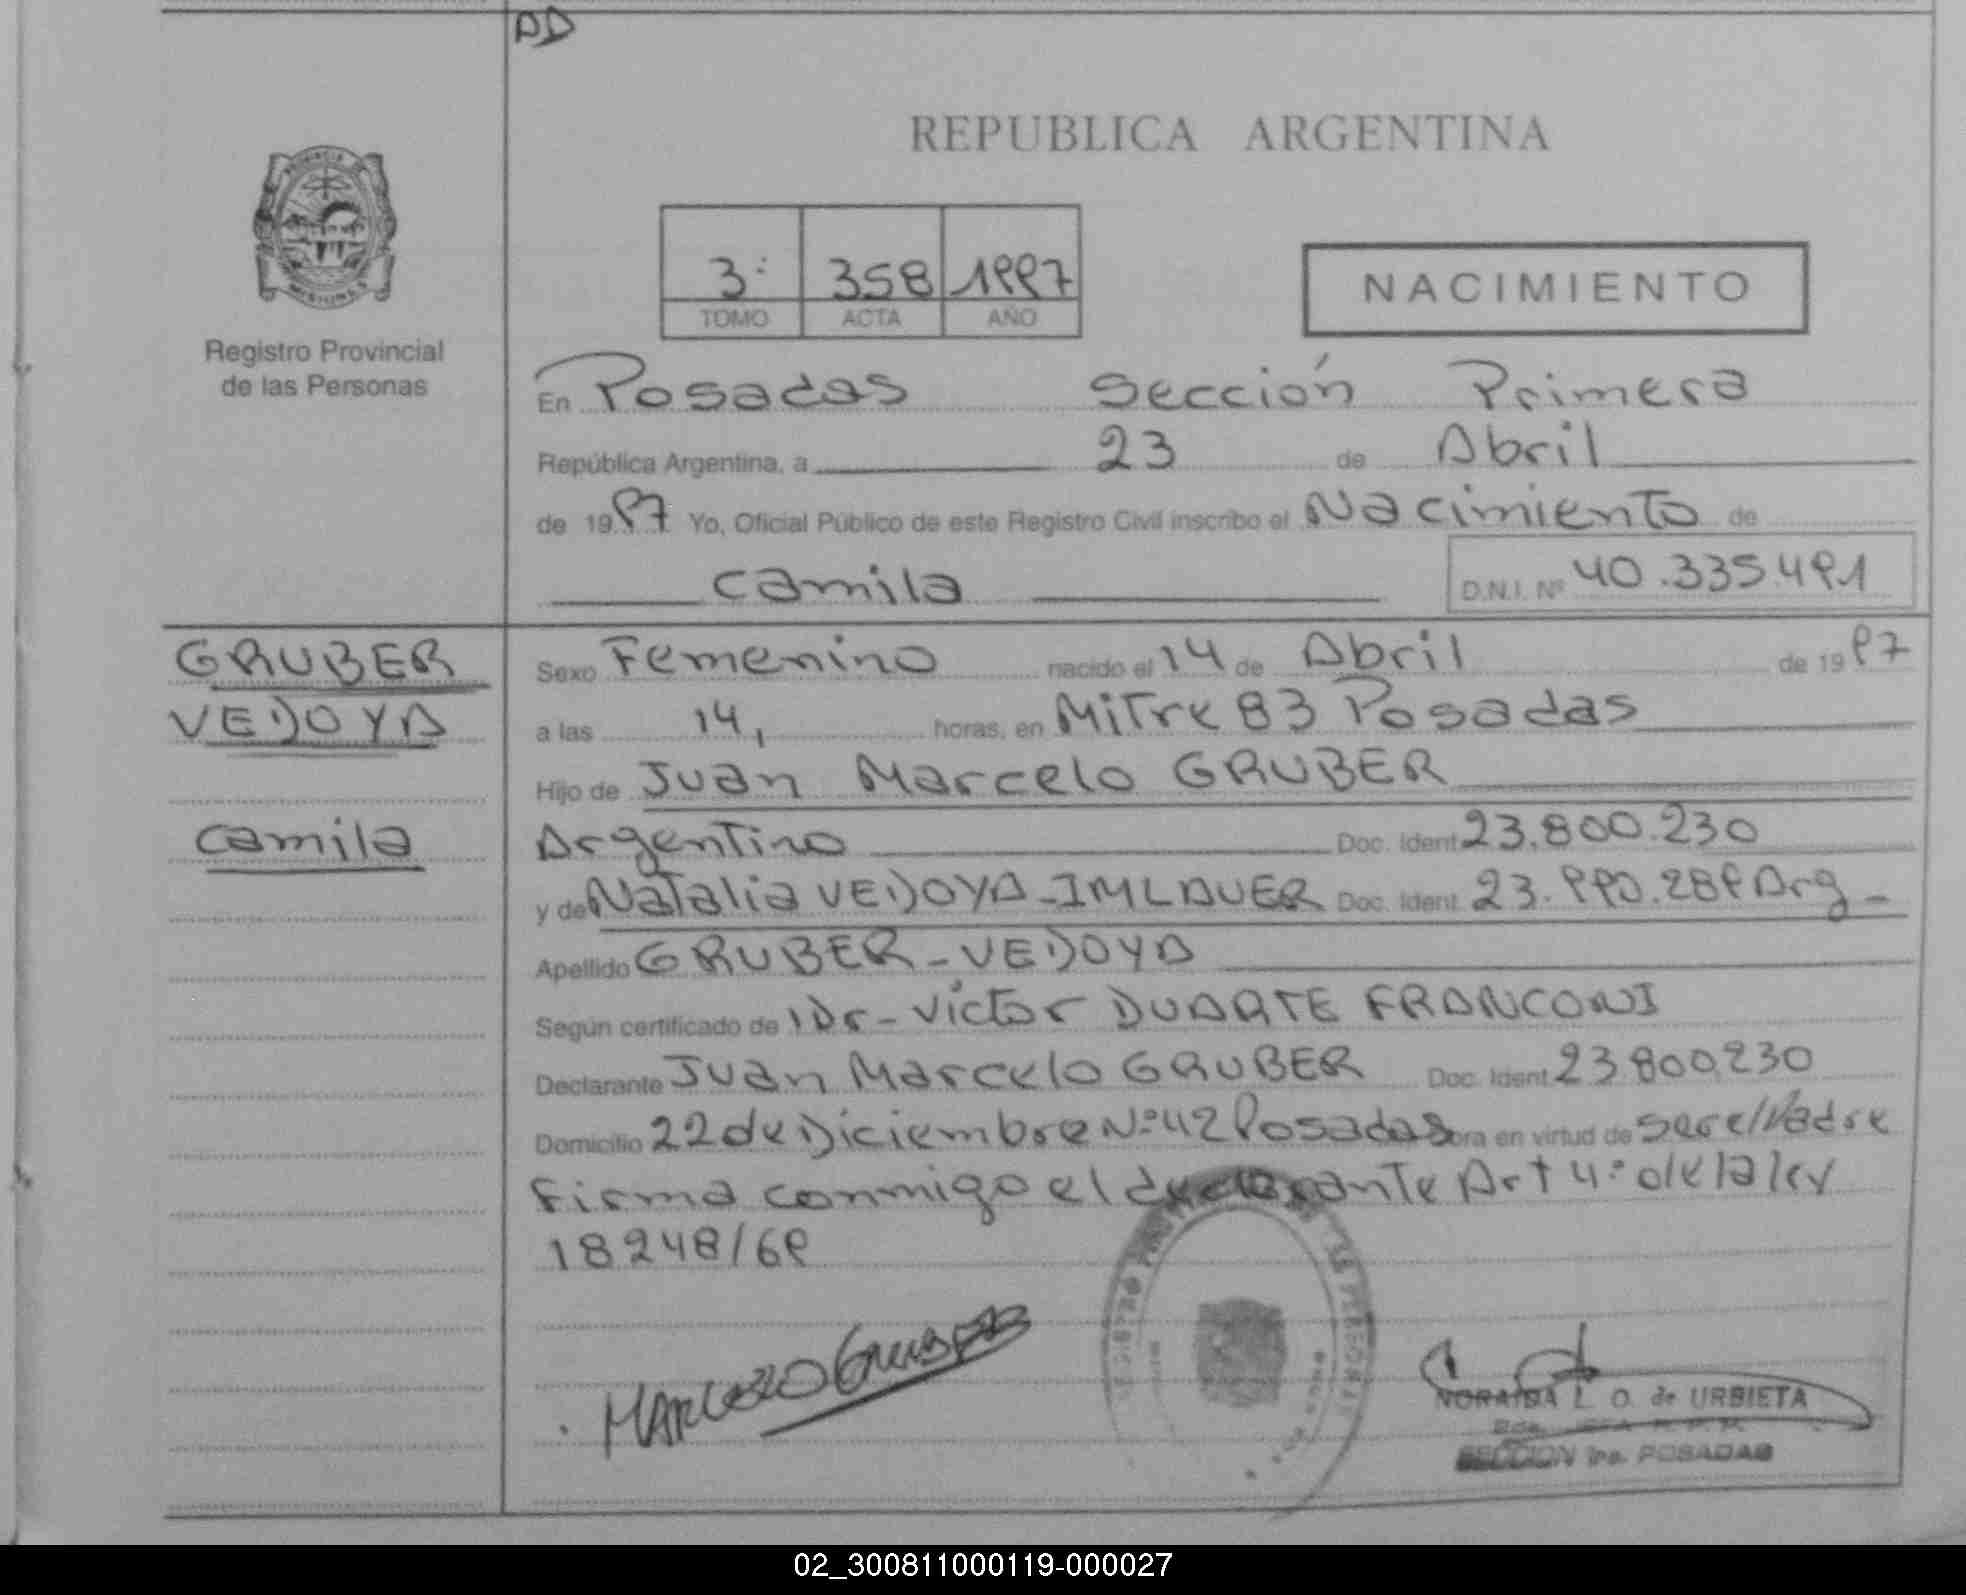 DD
REPUBLICA ARGENTINA
PROVINCIA DE
MISIONES
3: 358 1997
TOMO ACTA AÑO
NACIMIENTO
Registro Provincial
de las Personas
En Posadas Sección Primera
República Argentina, a 23 de Abril
de 1997 Yo, Oficial Público de este Registro Civil inscribo el Nacimiento de
Camila D.N.I. Nº 40.335.491
GRUBER
VEDOYA
Camila
Sexo Femenino nacido el 14 de Abril de 1997
a las 14, horas, en Mitre 83 Posadas
Hijo de Juan Marcelo GRUBER
Argentino Doc. Ident. 23.800.230
y de Natalia VEDOYA-IMLAUER Doc. Ident. 23.990.289 Arg-
Apellido GRUBER-VEDOYA
Según certificado de Dr-Víctor DUARTE FRANCONI
Declarante Juan Marcelo GRUBER Doc. Ident. 23800230
Domicilio 22 de Diciembre Nº 42 Posadas obra en virtud de ser el Padre
Firma conmigo el declarante Art 4º de la ley
18248/69
MARCELO GRUBER
NORAIDA L. O. de URBIETA
SECCION 1ra. POSADAS
02_300811000119-000027